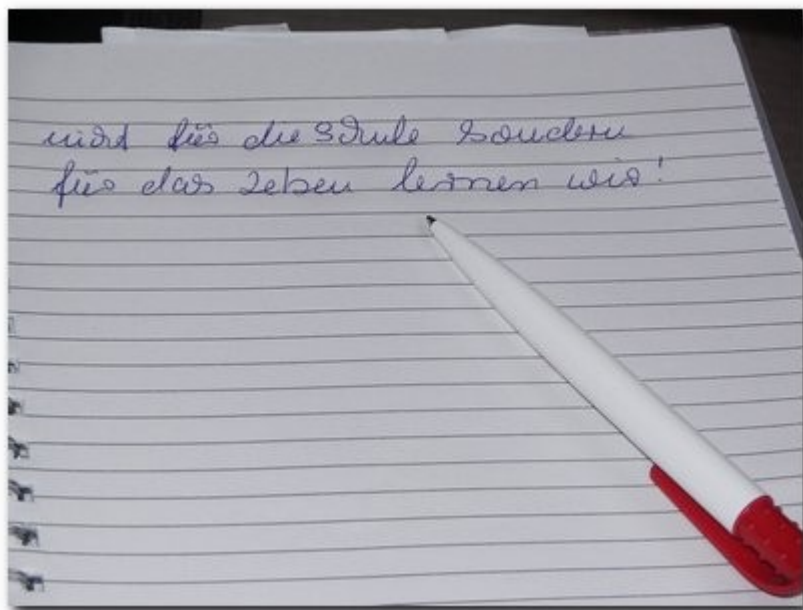 nicht für die Schule sondern
für das Leben lernen wir!